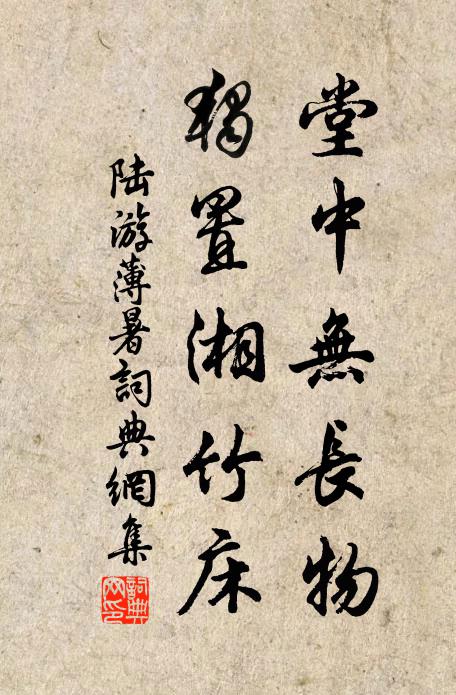 堂中無長物
獨置湘竹床
陸游薄暑詞典網集
詞典網印